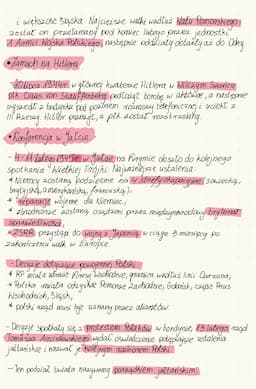 i większość Śląska. Najcięższe walki wzdłuż Wału Pomorskiego,
został on przełamany pod koniec lutego przez jednostki
1 Armii Wojska Polskiego, następnie oddziały dotarły aż do Odry.
• Zamach na Hitlera
- 20 lipca 1944r. w głównej kwaterze Hitlera w Wilczym Szańcu
płk Claus von Stauffenberg podłożył bombę w aktówce, a następnie
wyszedł z budynku pod pozorem rozmowy telefonicznej i uciekł z
III Rzeszy. Hitler przeżył, a płk. został rozstrzelany.
• Konferencja w Jałcie
- 4-11 lutego 1945r. w Jałcie na Krymie doszło do kolejnego
spotkania "Wielkiej Trójki". Najważniejsze ustalenia:
* Niemcy zostaną podzielone na 4 strefy okupacyjne (sowiecką,
brytyjską, amerykańską, francuską),
* reparacje wojenne dla Niemiec,
* zbrodniarze zostaną osądzeni przez międzynarodowy trybunał
sprawiedliwości,
* ZSRR przystąpi do wojny z Japonią w ciągu 3 miesięcy po
zakończeniu walk w Europie.
- Decyzje dotyczące powojennej Polski:
* RP miała utracić Kresy Wschodnie, granica wzdłuż linii Curzona,
* Polska miała odzyskać Pomorze Zachodnie, Gdańsk, część Prus
Wschodnich, Śląsk,
* polski rząd musi być uznany przez aliantów.
- Decyzje spotkały się z protestem Polaków w Londynie, 13 lutego rząd
Tomasza Arciszewskiego wydał oświadczenie potępiające ustalenia
jałtańskie i nazwał je kolejnym rozbiorem Polski.
- Ten podział świata nazywamy porządkiem jałtańskim.